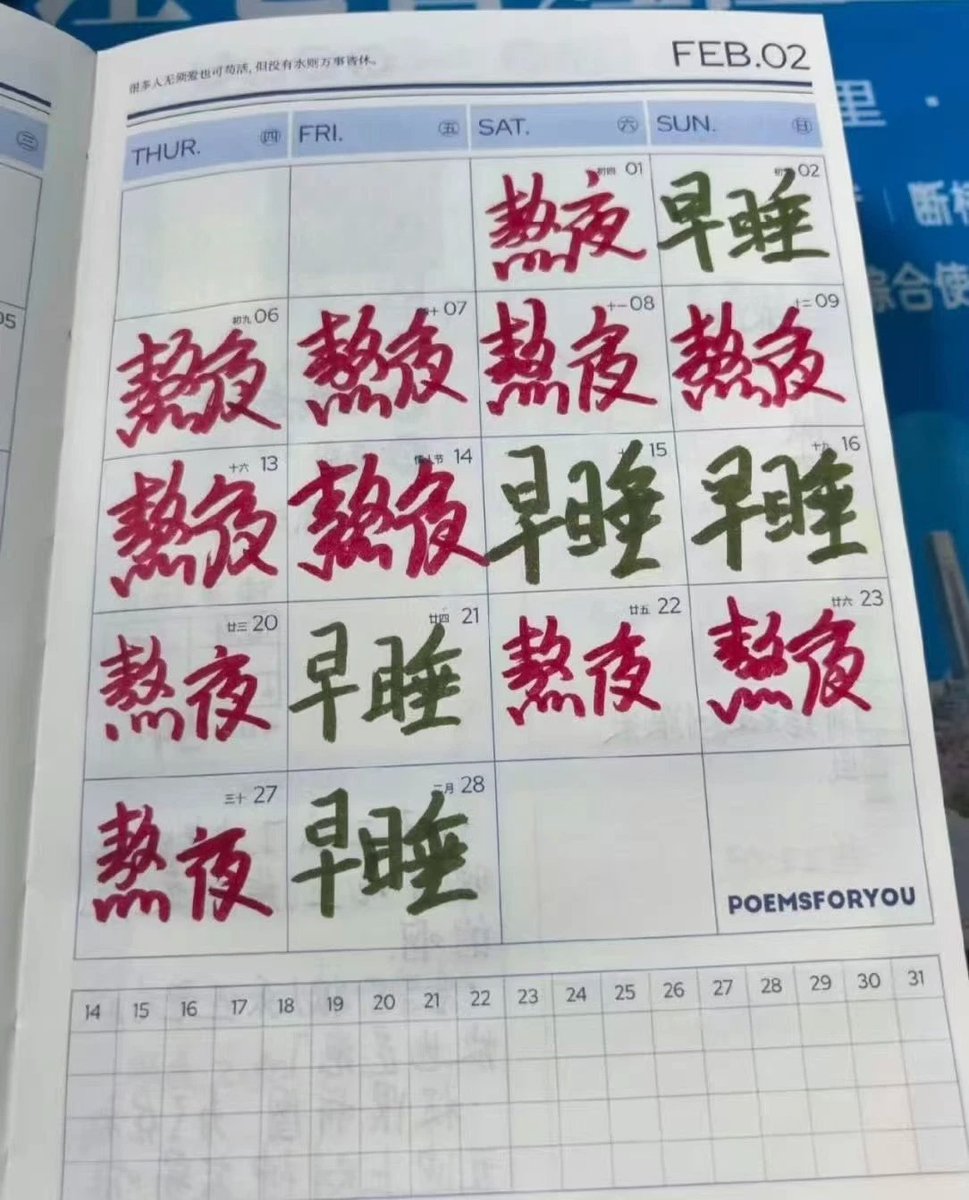 很多人无须爱也可苟活,但没有水则万事皆休。
FEB.02
三
THUR. 四 FRI. 五 SAT. 六 SUN. 日
初四 01 02
熬夜 早睡
05
初九 06 初十 07 十一 08 十二 09
熬夜 熬夜 熬夜 熬夜
十六 13 情人节 14 15 十九 16
熬夜 熬夜 早睡 早睡
廿三 20 廿四 21 廿五 22 廿六 23
熬夜 早睡 熬夜 熬夜
三十 27 二月 28
熬夜 早睡
POEMSFORYOU
14 15 16 17 18 19 20 21 22 23 24 25 26 27 28 29 30 31
里 ·
断
综合使